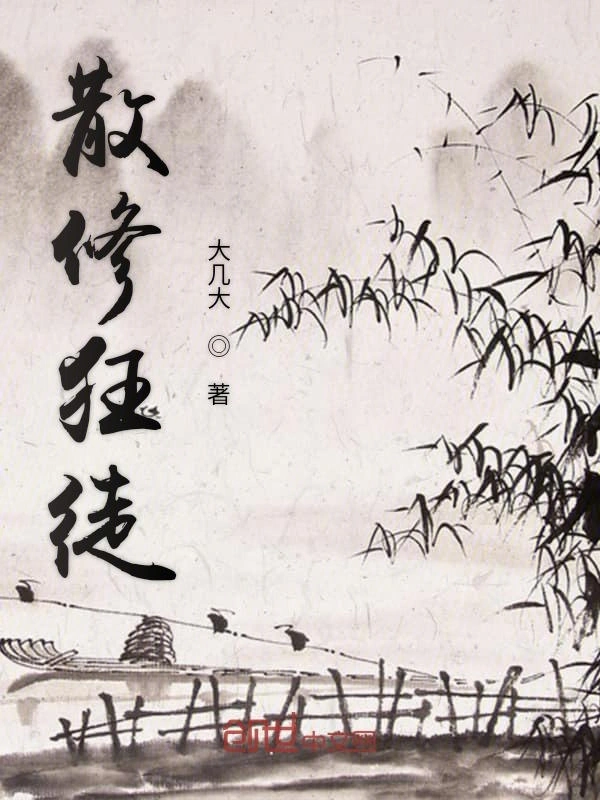 散修狂徒
大几大 ◎ 著
中文网